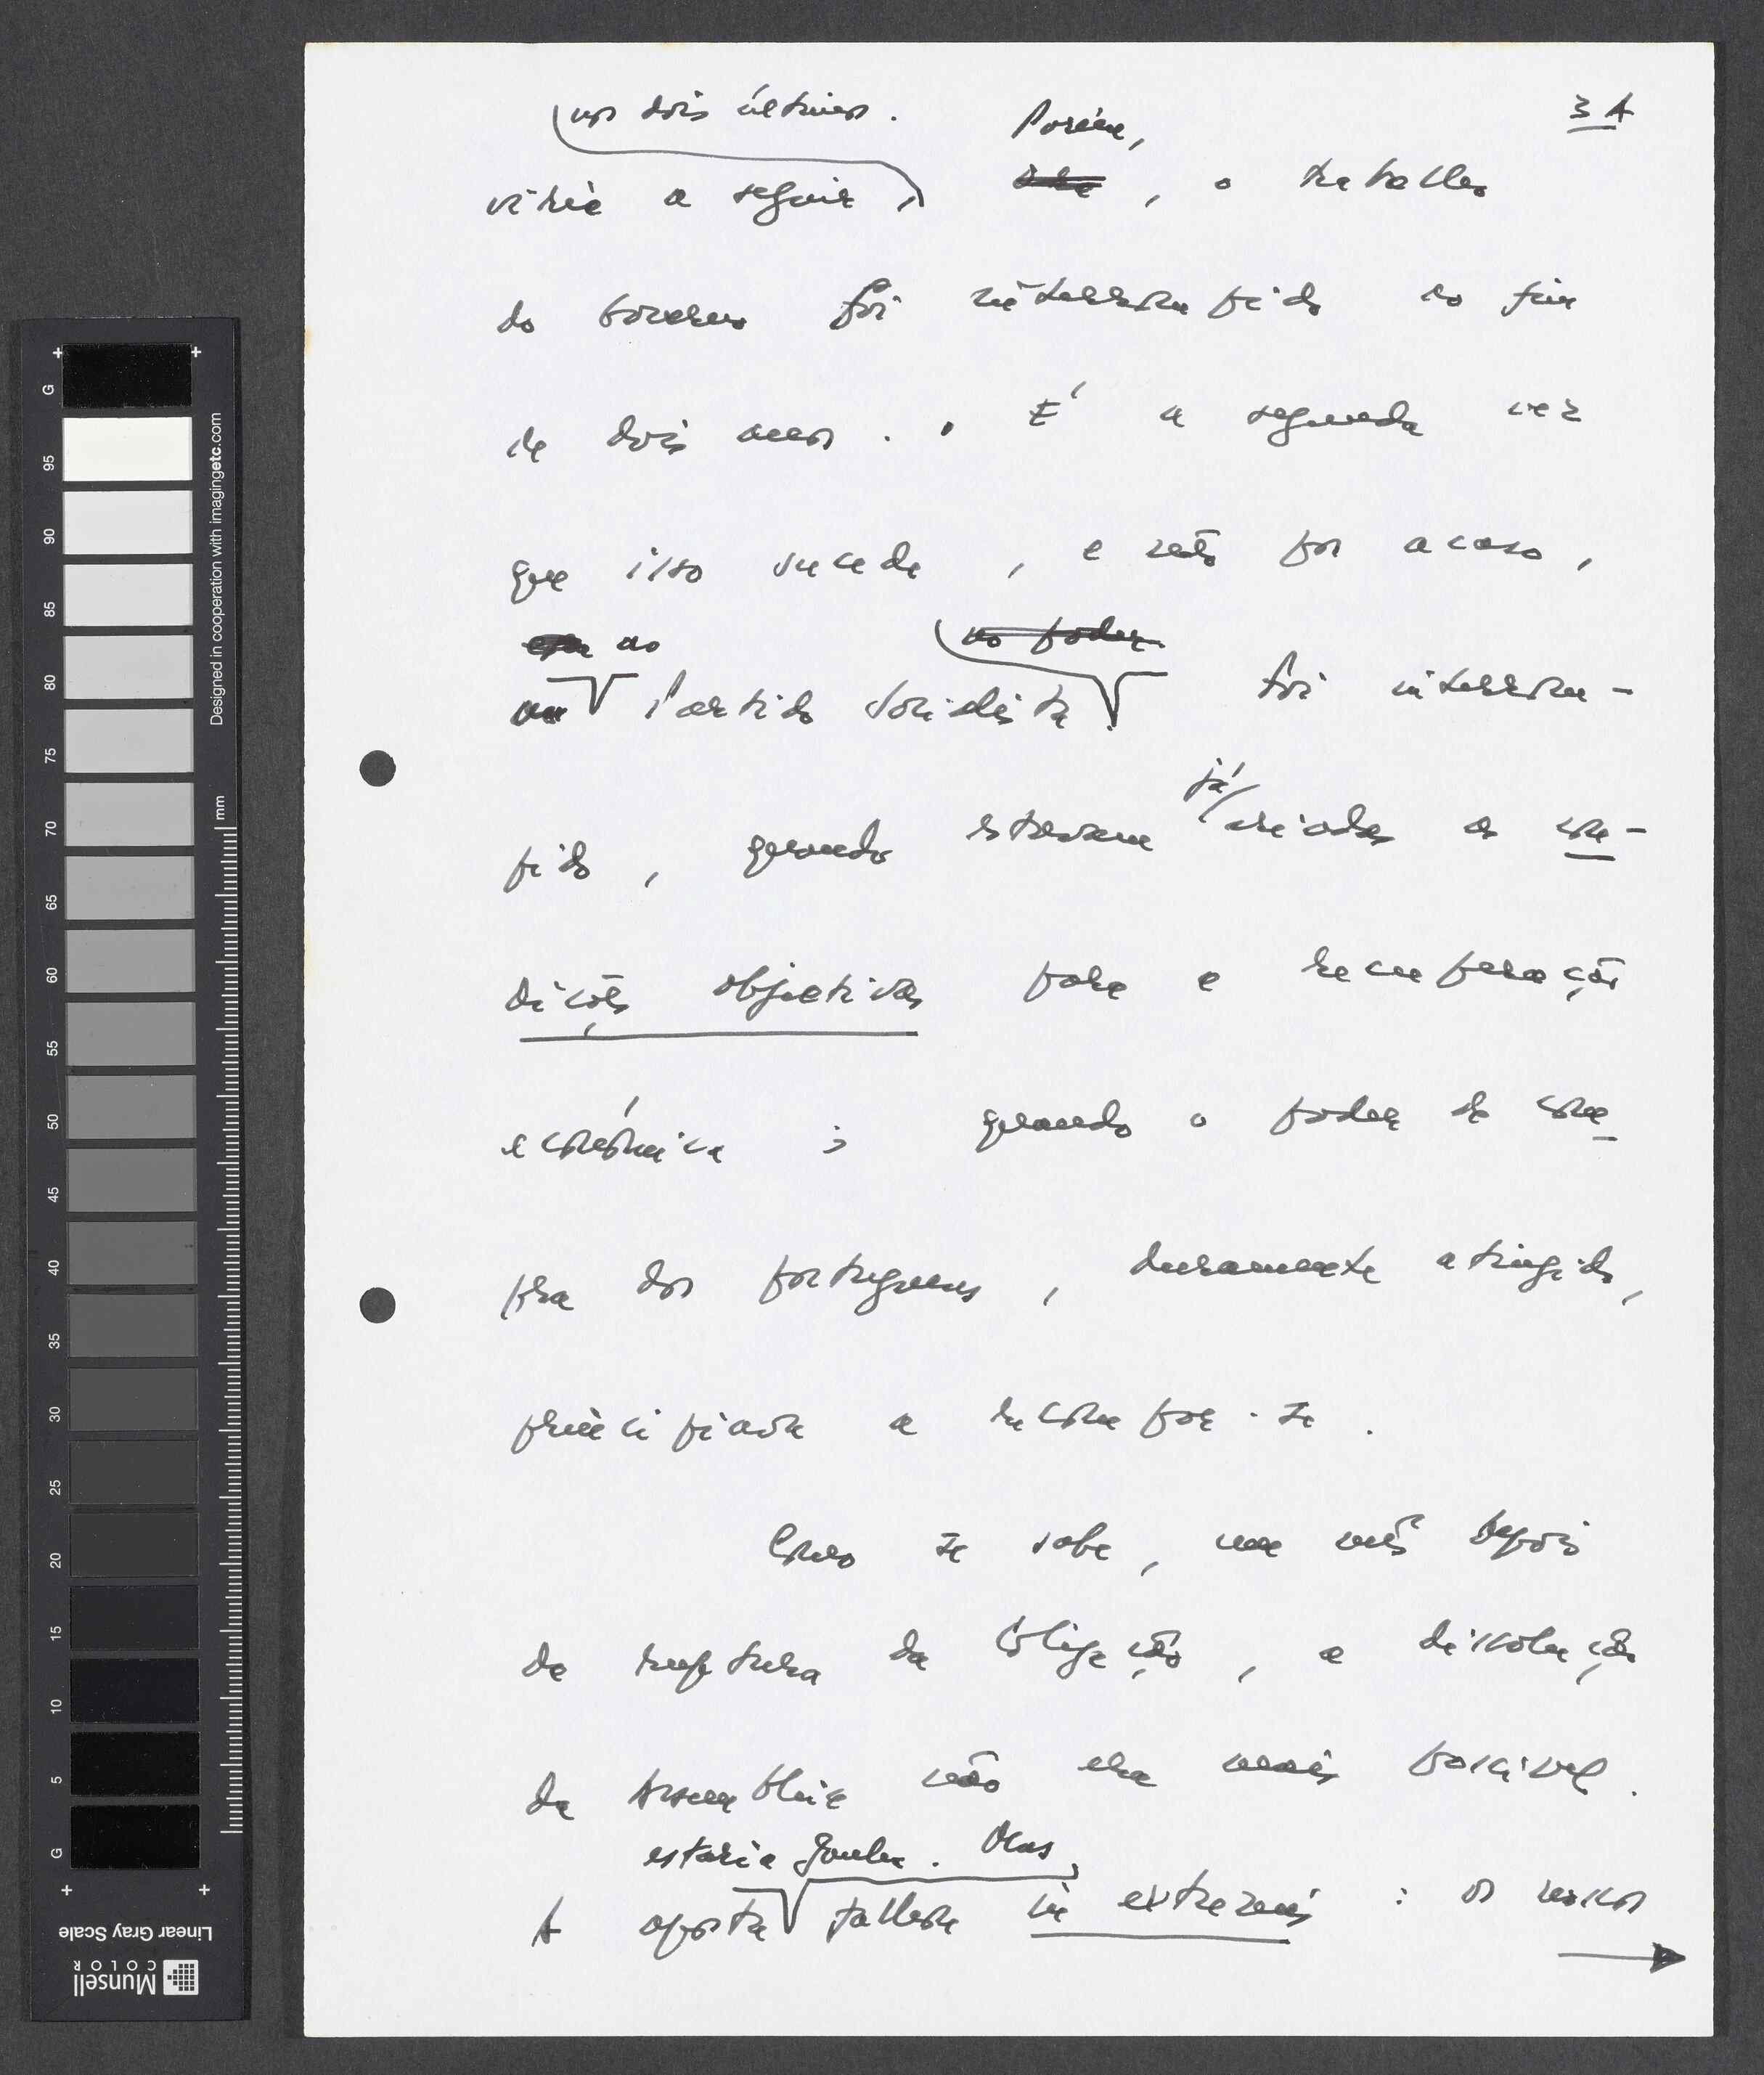 3 A
nos dois últimos. Porém,
viria a seguir, , o trabalho
do Governo foi interrompido no fim
de dois anos. . É a segunda vez
que isso sucede, e não por acaso,
ao no poder
Partido Socialista. foi interrom-
já
pido, quando estavam criadas as con-
dições objectivas para a recuperação
económica; quando o poder de com
pra dos portugueses, duramente atingido,
principiava a recompor-se.
Como se sabe, um mês depois
da ruptura da Coligação, a dissolução
da Assembleia não era mais possível.
estaria ganha. Mas,
A aposta falhou in extremis: os nossos
G 95 90 85 80 75 70 65 60 55 50 45 40 35 30 25 20 15 10 5 G
mm
Designed in cooperation with imagingetc.com
Linear Gray Scale
Munsell
COLOR